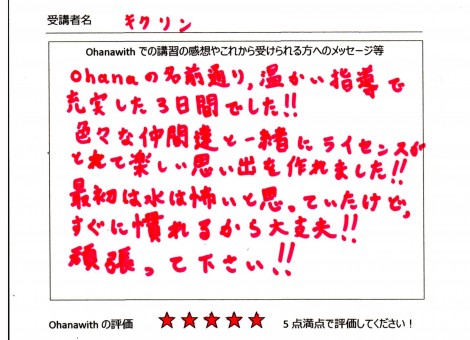 受講者名 キクリン
Ohanawith での講習の感想やこれから受けられる方へのメッセージ等
ohanaの名前通り,温かい指導で
充実した3日間でした!!
色々な仲間達と一緒にライセンスが
とれて楽しい思い出を作れました!!
最初は水は怖いと思っていたけど,
すぐに慣れるから大丈夫!!
頑張って下さい!!
Ohanawith の評価 ★★★★★ 5 点満点で評価してください!